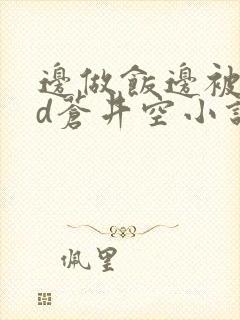 邊做飯邊被
d蒼井空小說
佩里